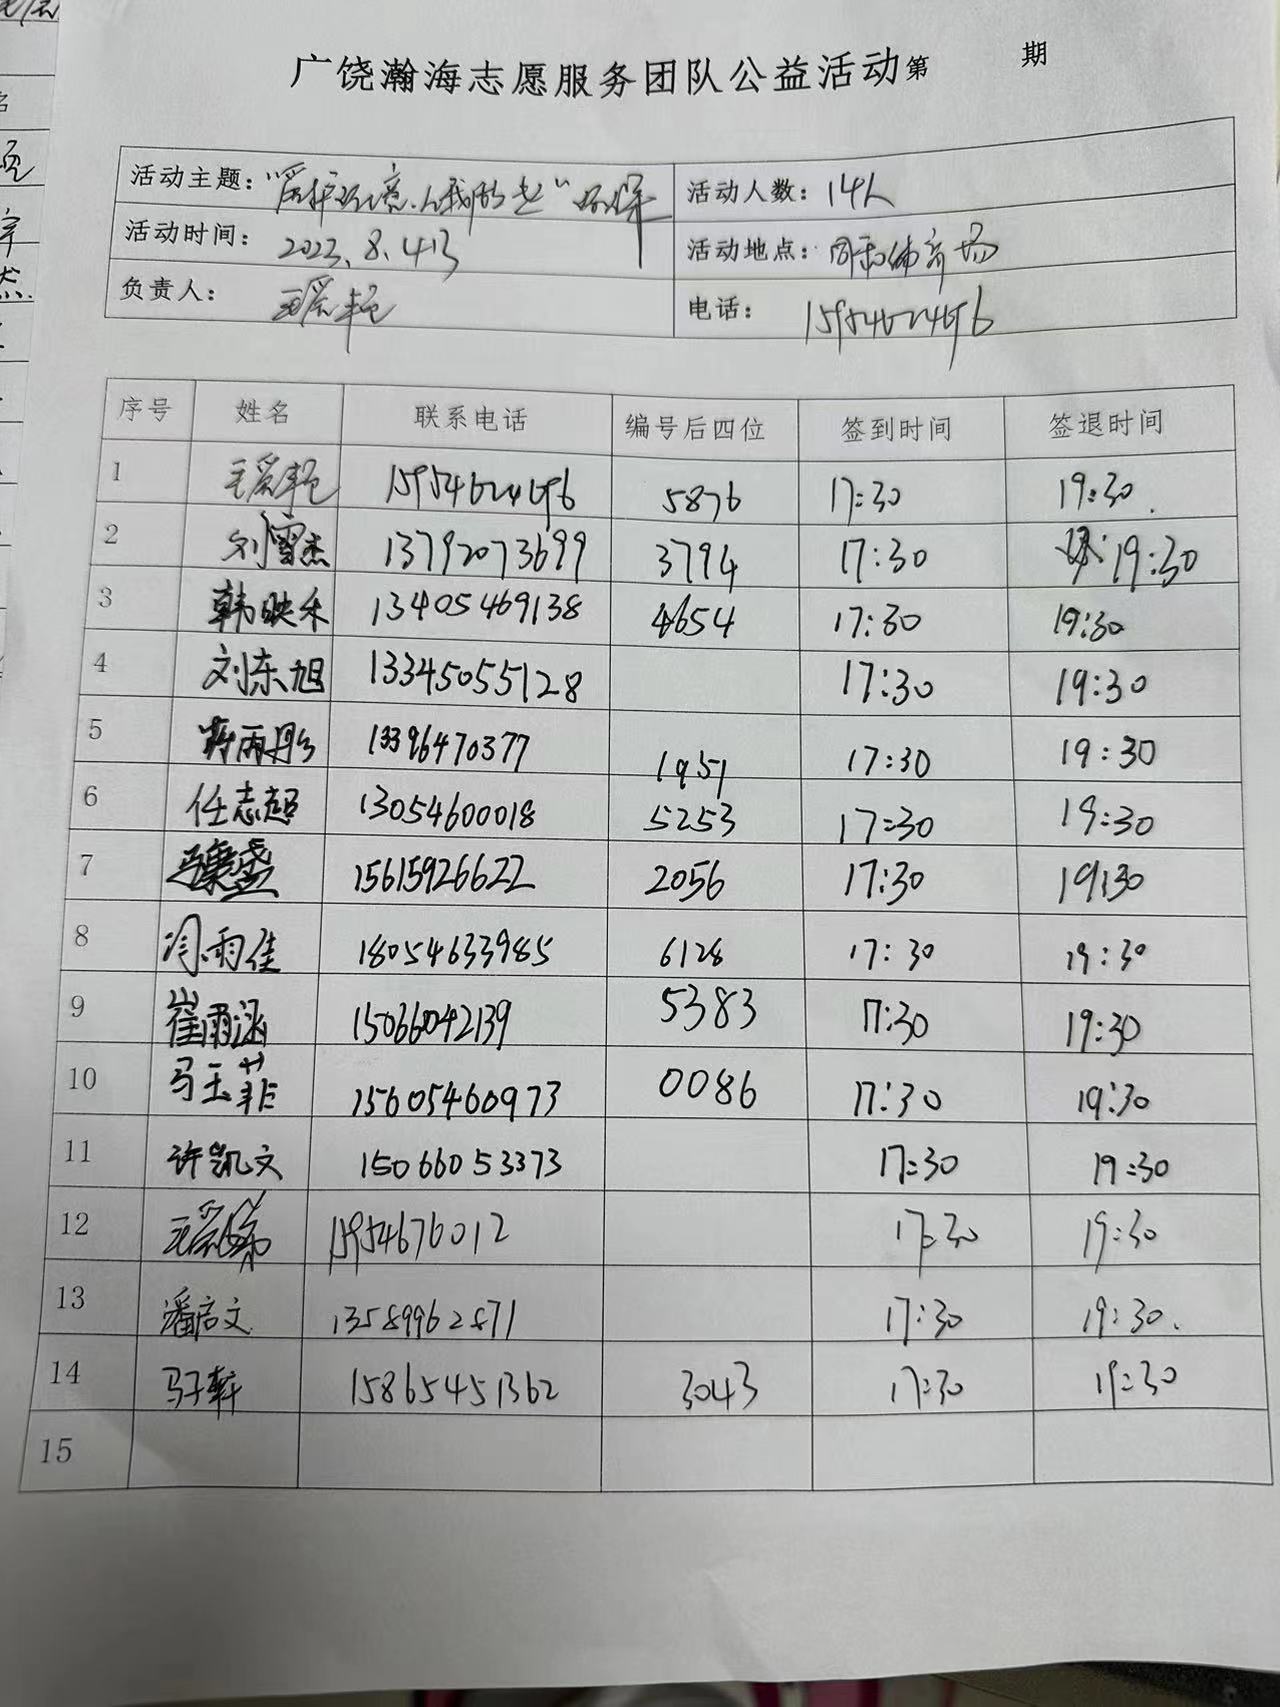 广饶瀚海志愿服务团队公益活动第 期
活动主题：“爱护环境，从我做起”环保 活动人数：14人
活动时间：2023.8.4日 活动地点：同和体育场
负责人：王爱艳 电话：15954624696
序号 姓名 联系电话 编号后四位 签到时间 签退时间
1 王爱艳 15954624696 5876 17:30 19:30.
2 刘雪杰 13792073699 3794 17:30 19:30
3 韩映禾 13405469138 4654 17:30 19:30
4 刘东旭 13345055128 17:30 19:30
5 蒋雨彤 13396470377 1951 17:30 19:30
6 任志超 13054600018 5253 17:30 19:30
7 15615926622 2056 17:30 19:30
8 冯雨佳 18054633985 6128 17:30 19:30
9 崔雨涵 15066042139 5383 17:30 19:30
10 马玉菲 15605460973 0086 17:30 19:30
11 许凯文 15066053373 17:30 19:30
12 15954676012 17:30 19:30
13 潘启文 13589962871 17:30 19:30.
14 马子轩 15865451362 3043 17:30 19:30
15